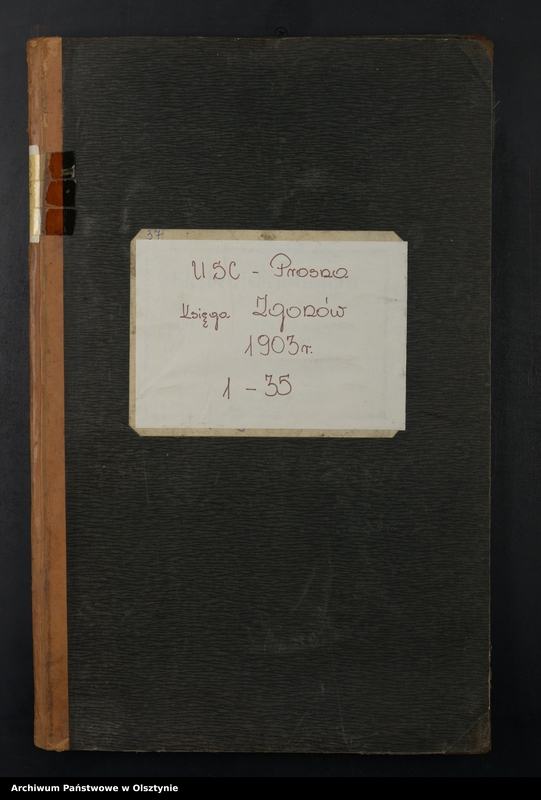 37
USC - Prosna
Księga Zgonów
1903 r.
1 - 35
Archiwum Państwowe w Olsztynie